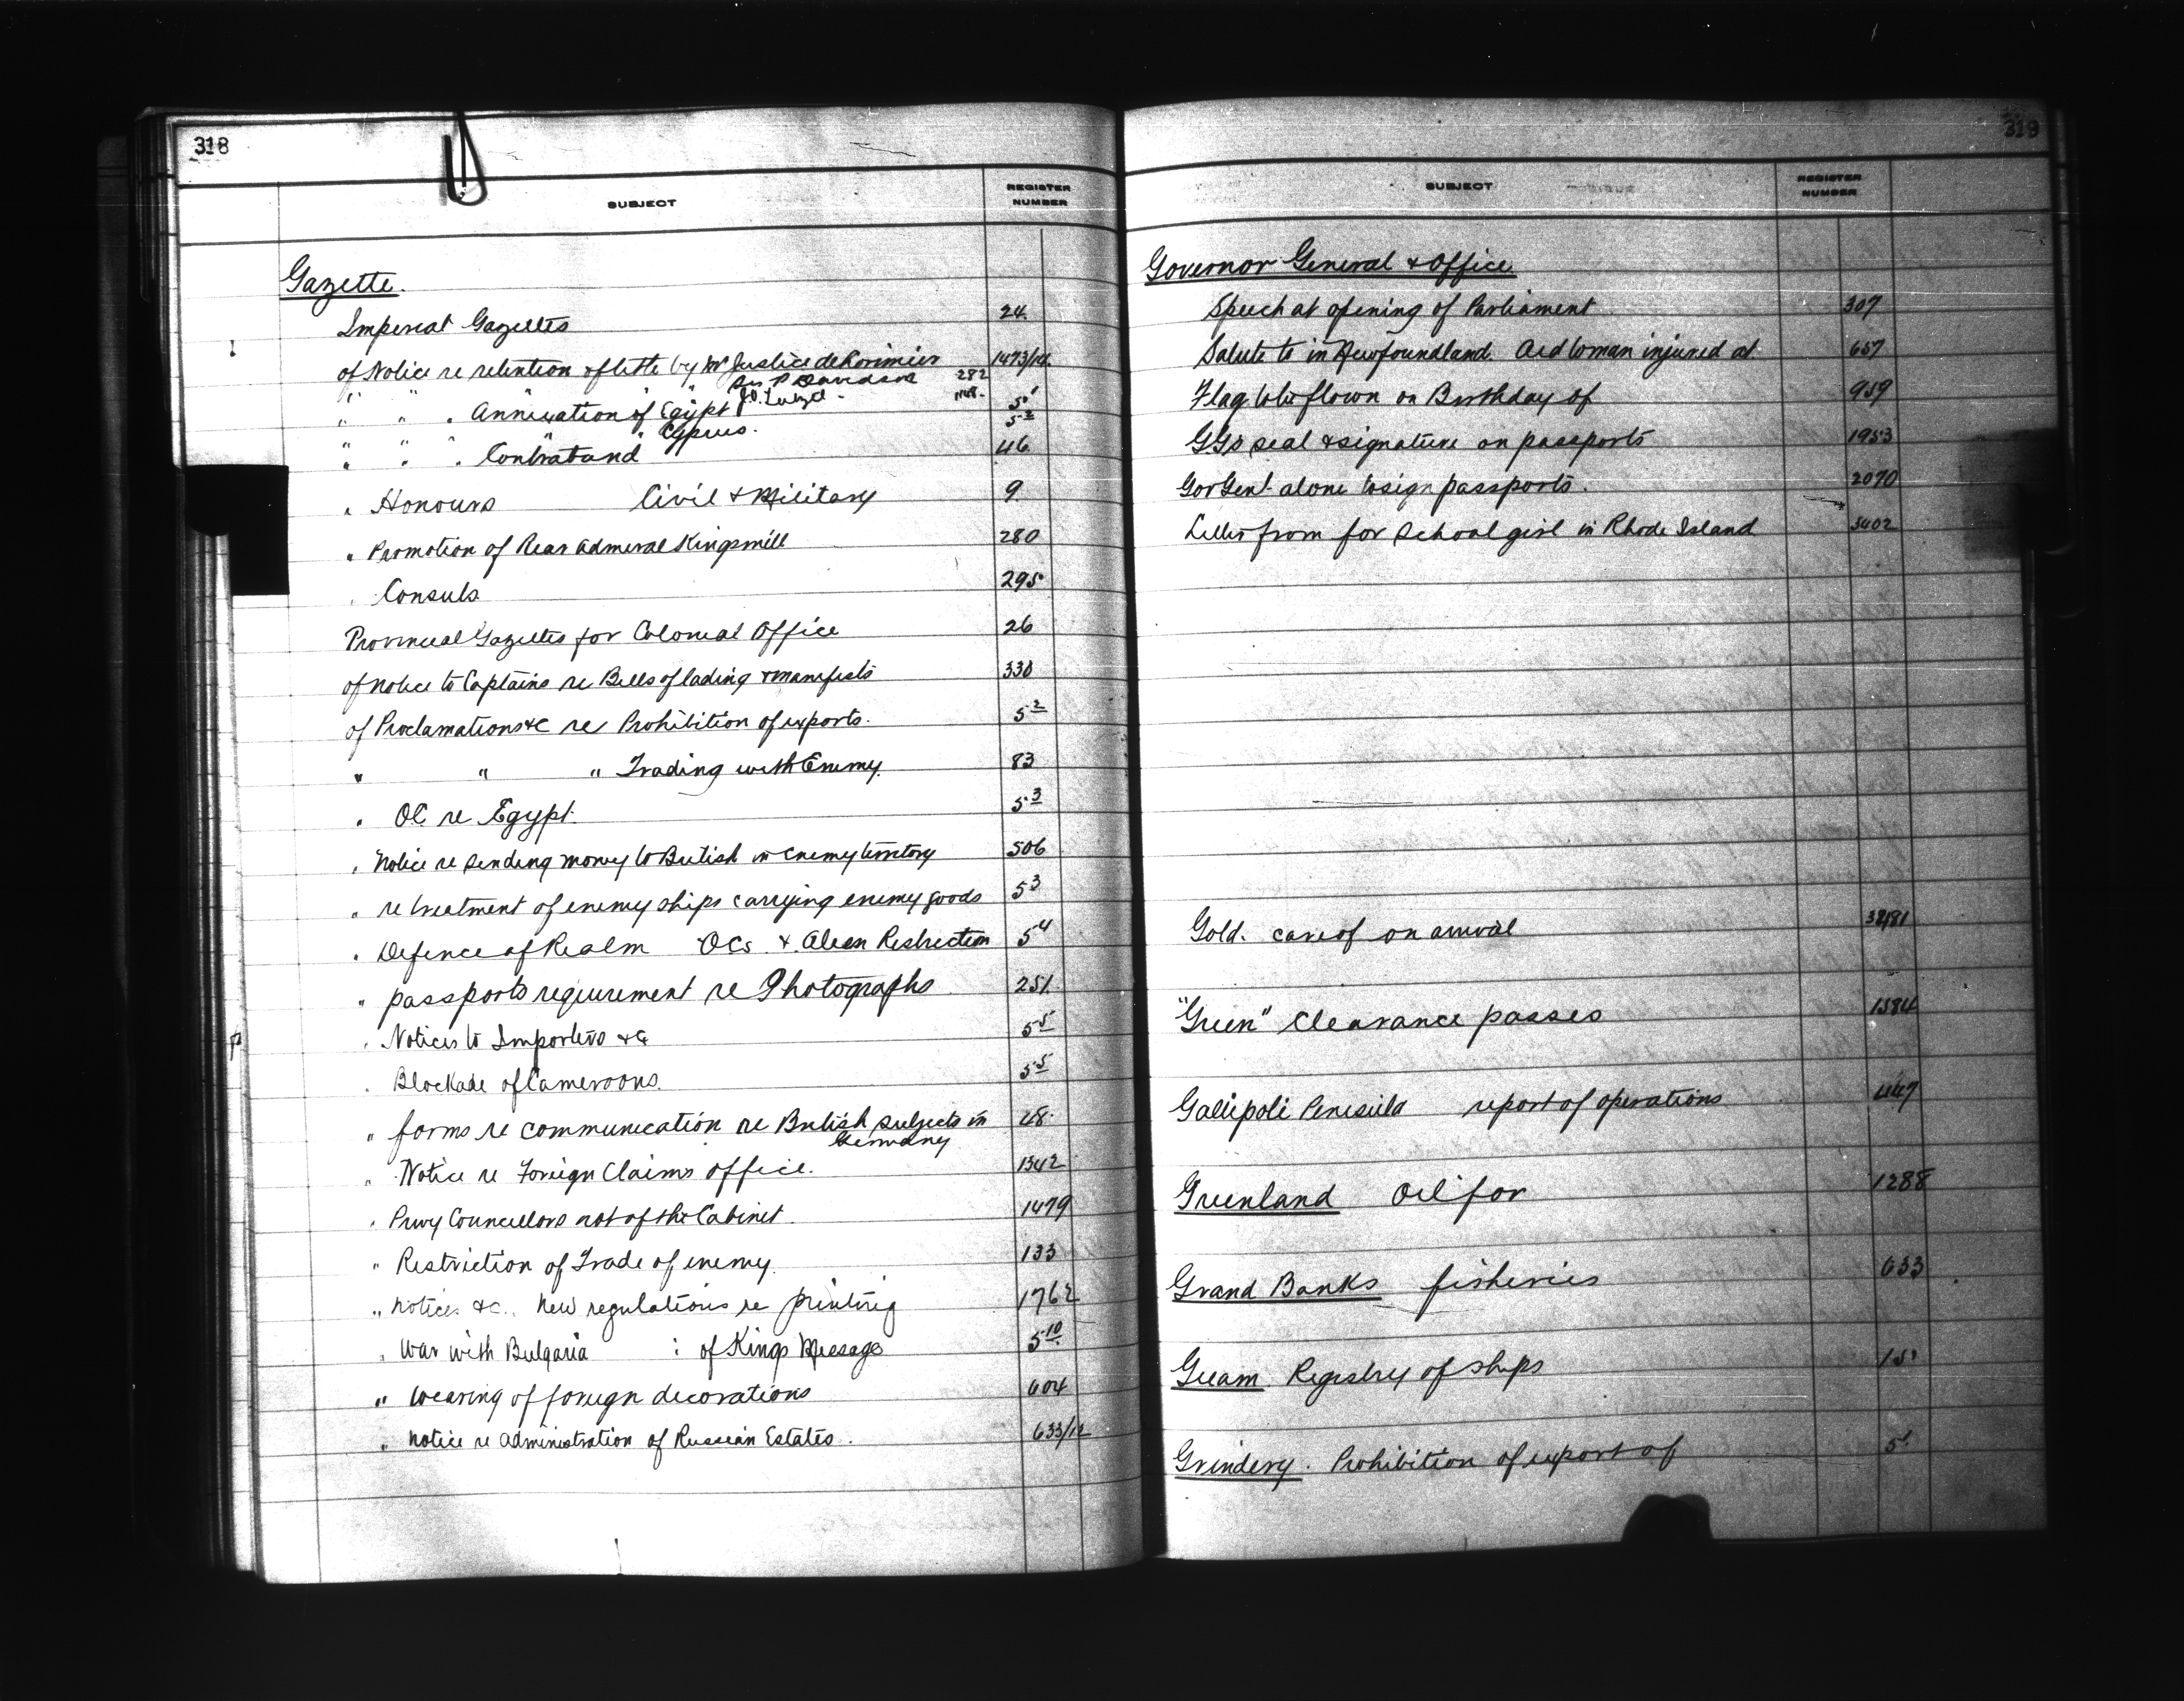 318
SUBJECT REGISTER NUMBER
Gazette.
Imperial Gazettes 24
of Notice re retention of title by Mr Justice de Lorimier 1473/14
" " " Sir P Davidson 282
" " . Annexation of Egypt 5
" " " Cyprus. 5 2
" " . Contraband 46
" Honours Civil & Military 9
" Promotion of Rear Admiral Kingsmill 280
. Consuls 295
Provincial Gazettes for Colonial Office 26
of Notice to Captains re Bills of lading & manifests 330
of Proclamations &c re Prohibition of exports. 5 2
" " " Trading with Enemy. 83
. OC re Egypt. 5 3
. Notice re sending money to British in Enemy territory 506
. re treatment of enemy ships carrying enemy goods 5 3
. Defence of Realm OCs & Alien Restriction 5 4
" passports requirement re Photographs 251
. Notices to Importers &c 5 5
. Blockade of Cameroons. 5 5
" forms re communication re British subjects in 28
Germany
" Notice re Foreign Claims office. 1342
. Privy Councillors not of the Cabinet. 1479
" Restriction of Trade of enemy. 133
" Notices &c. New regulations re printing 1762
. War with Bulgaria : of Kings Message 5 10
" Wearing of foreign decorations 604
" Notice re administration of Russian Estates. 633/12
319
SUBJECT REGISTER NUMBER
Governor General & Office
Speech at opening of Parliament 307
Salute to in Newfoundland. Old woman injured at 657
Flag to be flown on Birthday of 959
G.Gs seal & signature on passports 1953
Gov Genl. alone to sign passports. 2070
Letter from for School girl in Rhode Island 3402
Gold. care of on arrival
"Green" Clearance passes 1584
Gallipoli Penisula report of operations 447
Greenland Oil for 1288
Grand Banks fisheries 633
Guam Registry of ships 15
Grindery. Prohibition of export of 5